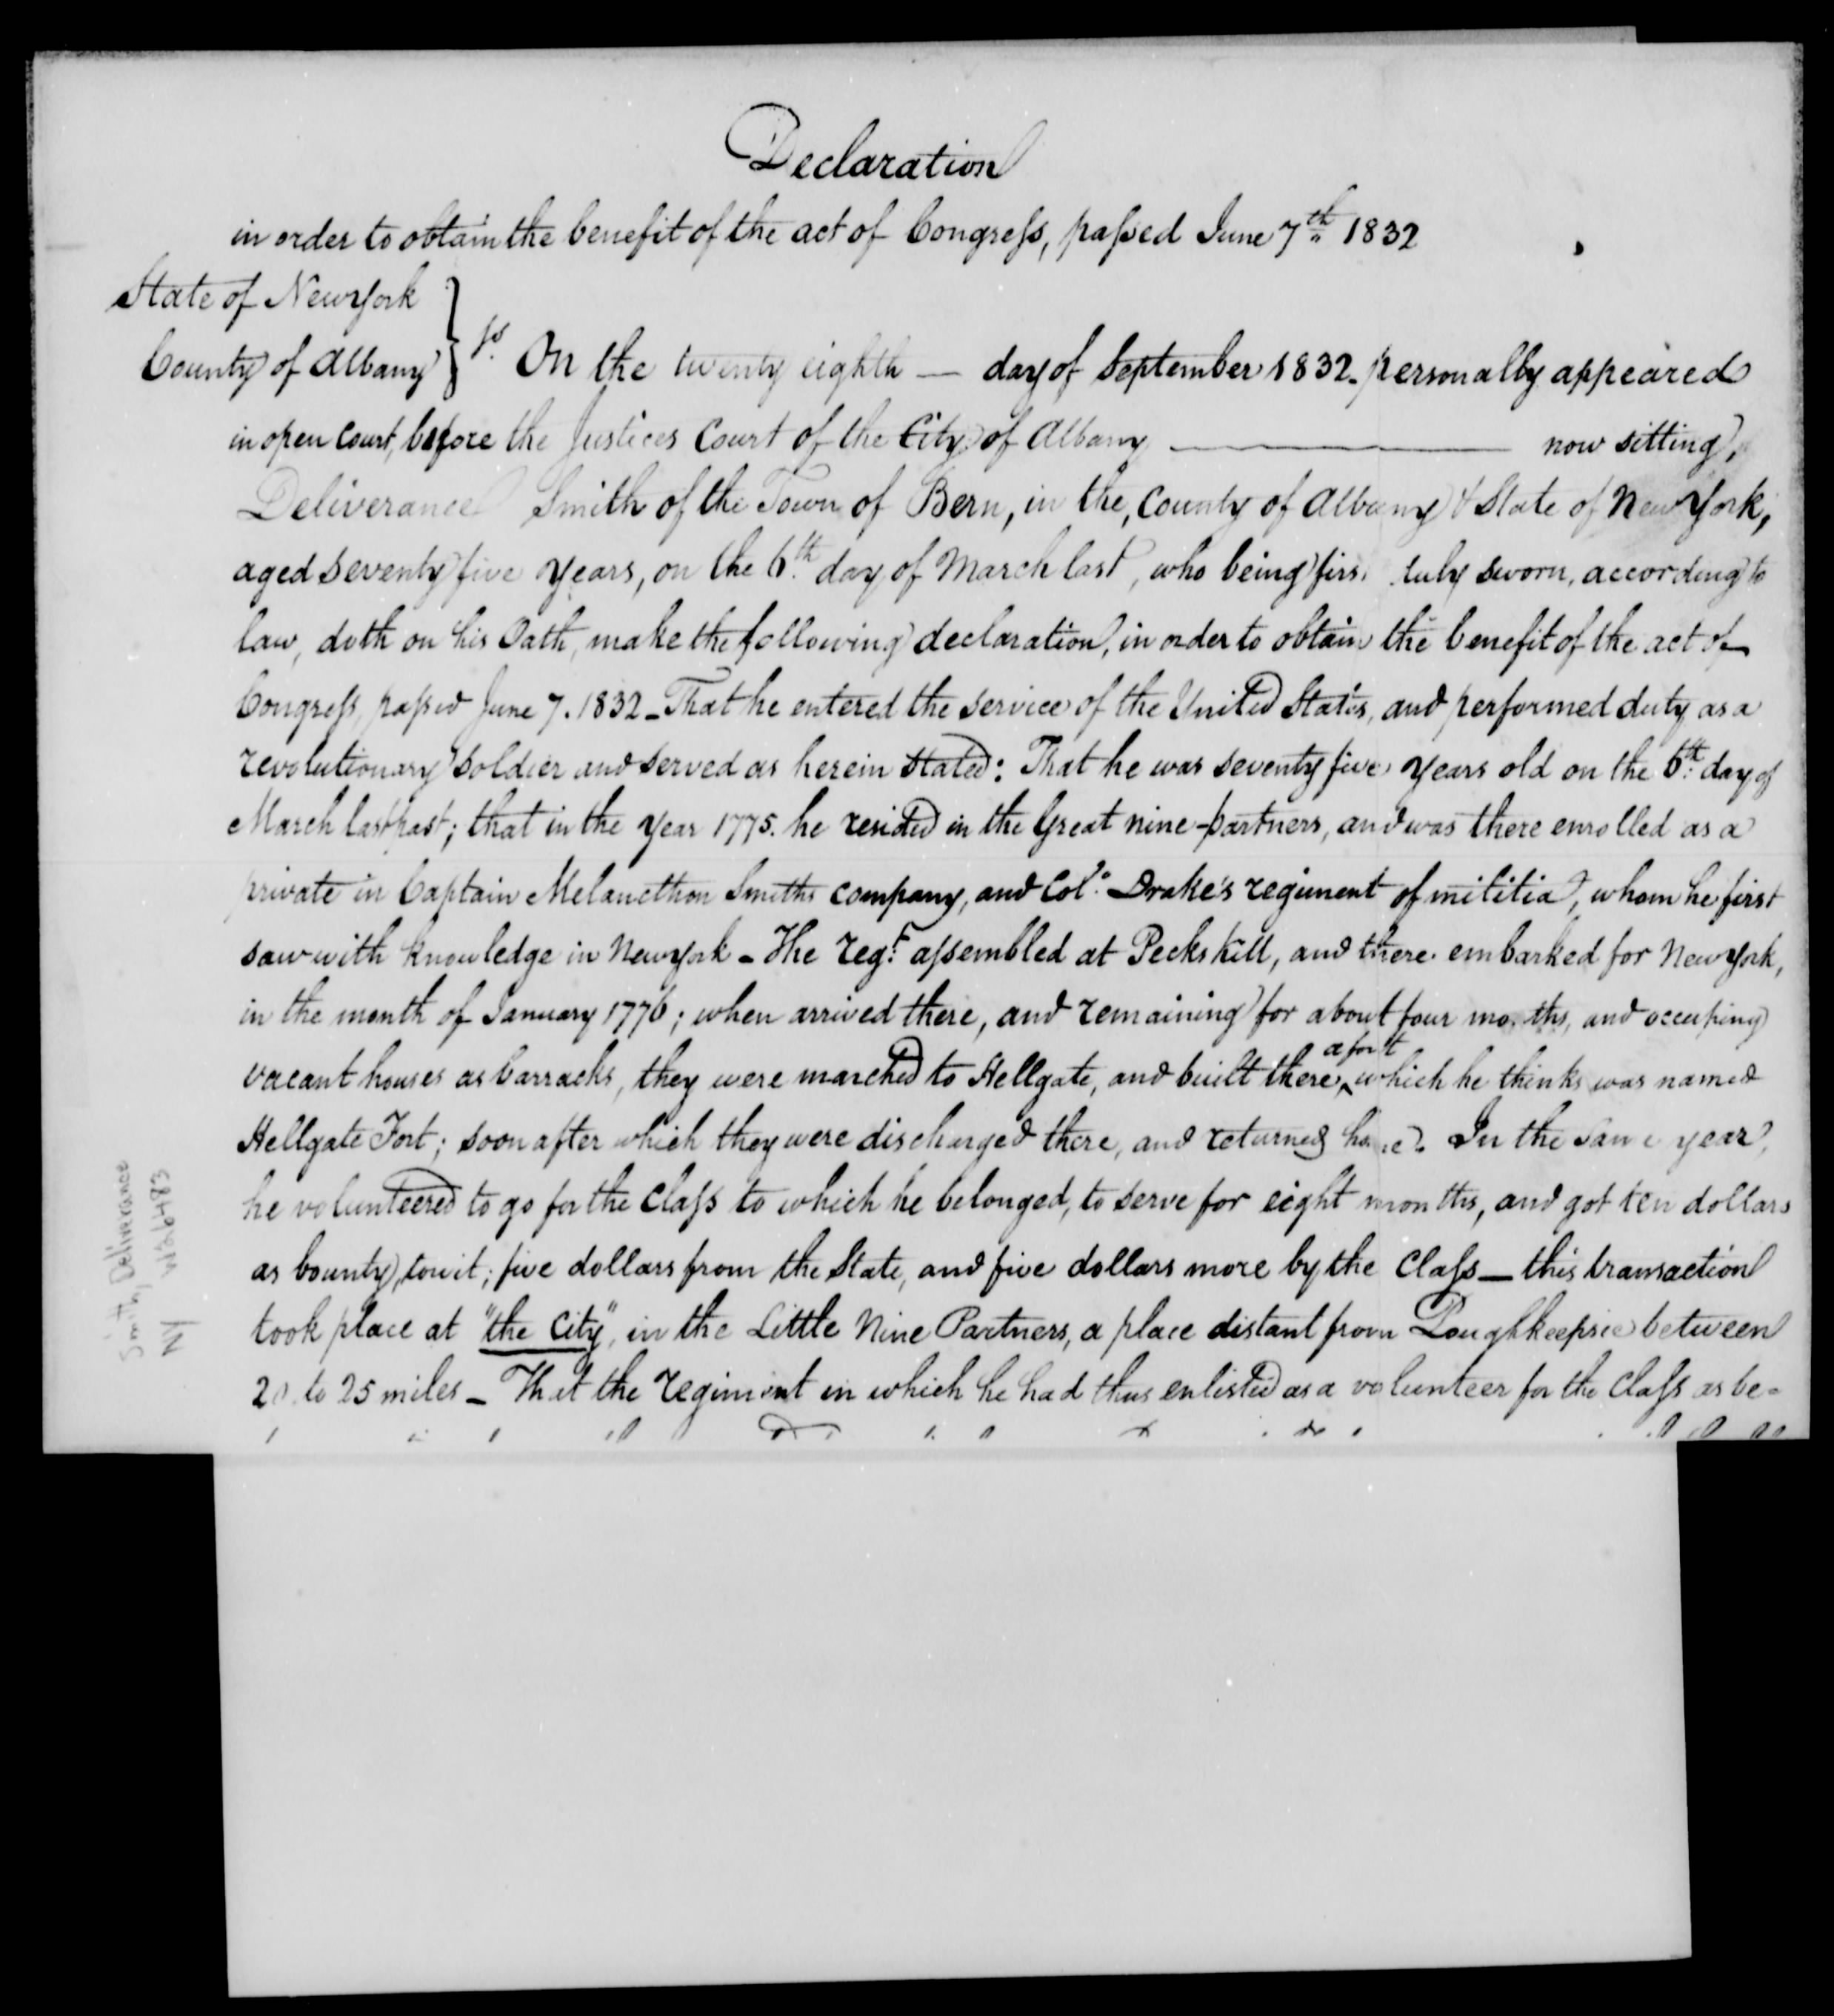 Declaration
in order to obtain the benefit of the act of Congress, passed June 7th 1832
State of New York
County of Albany } ss. On the twenty eighth — day of September 1832. personally appeared
in open Court, before the Justices Court of the City of Albany ——— now sitting,
Deliverance Smith of the Town of Bern, in the, County of Albany & State of New York,
aged seventy five years, on the 6th day of March last, who being first duly sworn, according to
law, doth on his Oath, make the following declaration, in order to obtain the benefit of the act of
Congress, passed June 7. 1832 - That he entered the service of the United States, and performed duty as a
revolutionary soldier and served as herein stated: That he was seventy five years old on the 6th day of
March last past; that in the year 1775. he resided in the Great nine-partners, and was there enrolled as a
private in Captain Melancthon Smiths company, and Colo. Drake's regiment of militia, whom he first
saw with knowledge in New York - The regt. assembled at Peekskill, and there embarked for New York,
in the month of January 1776; when arrived there, and remaining for about four months, and occuping
vacant houses as barracks, they were marched to Hellgate, and built there ^ a fort which he thinks was named
Hellgate Fort; soon after which they were discharged there, and returned home. In the same year,
he volunteered to go for the Class to which he belonged, to serve for eight months, and got ten dollars
as bounty, towit; five dollars from the State, and five dollars more by the Class — this transaction
took place at "the City", in the Little Nine Partners, a place distant from Poughkeepsie between
20 to 25 miles - That the regiment in which he had thus enlisted as a volunteer for the Class as be-
Smith, Deliverance
NY W26483